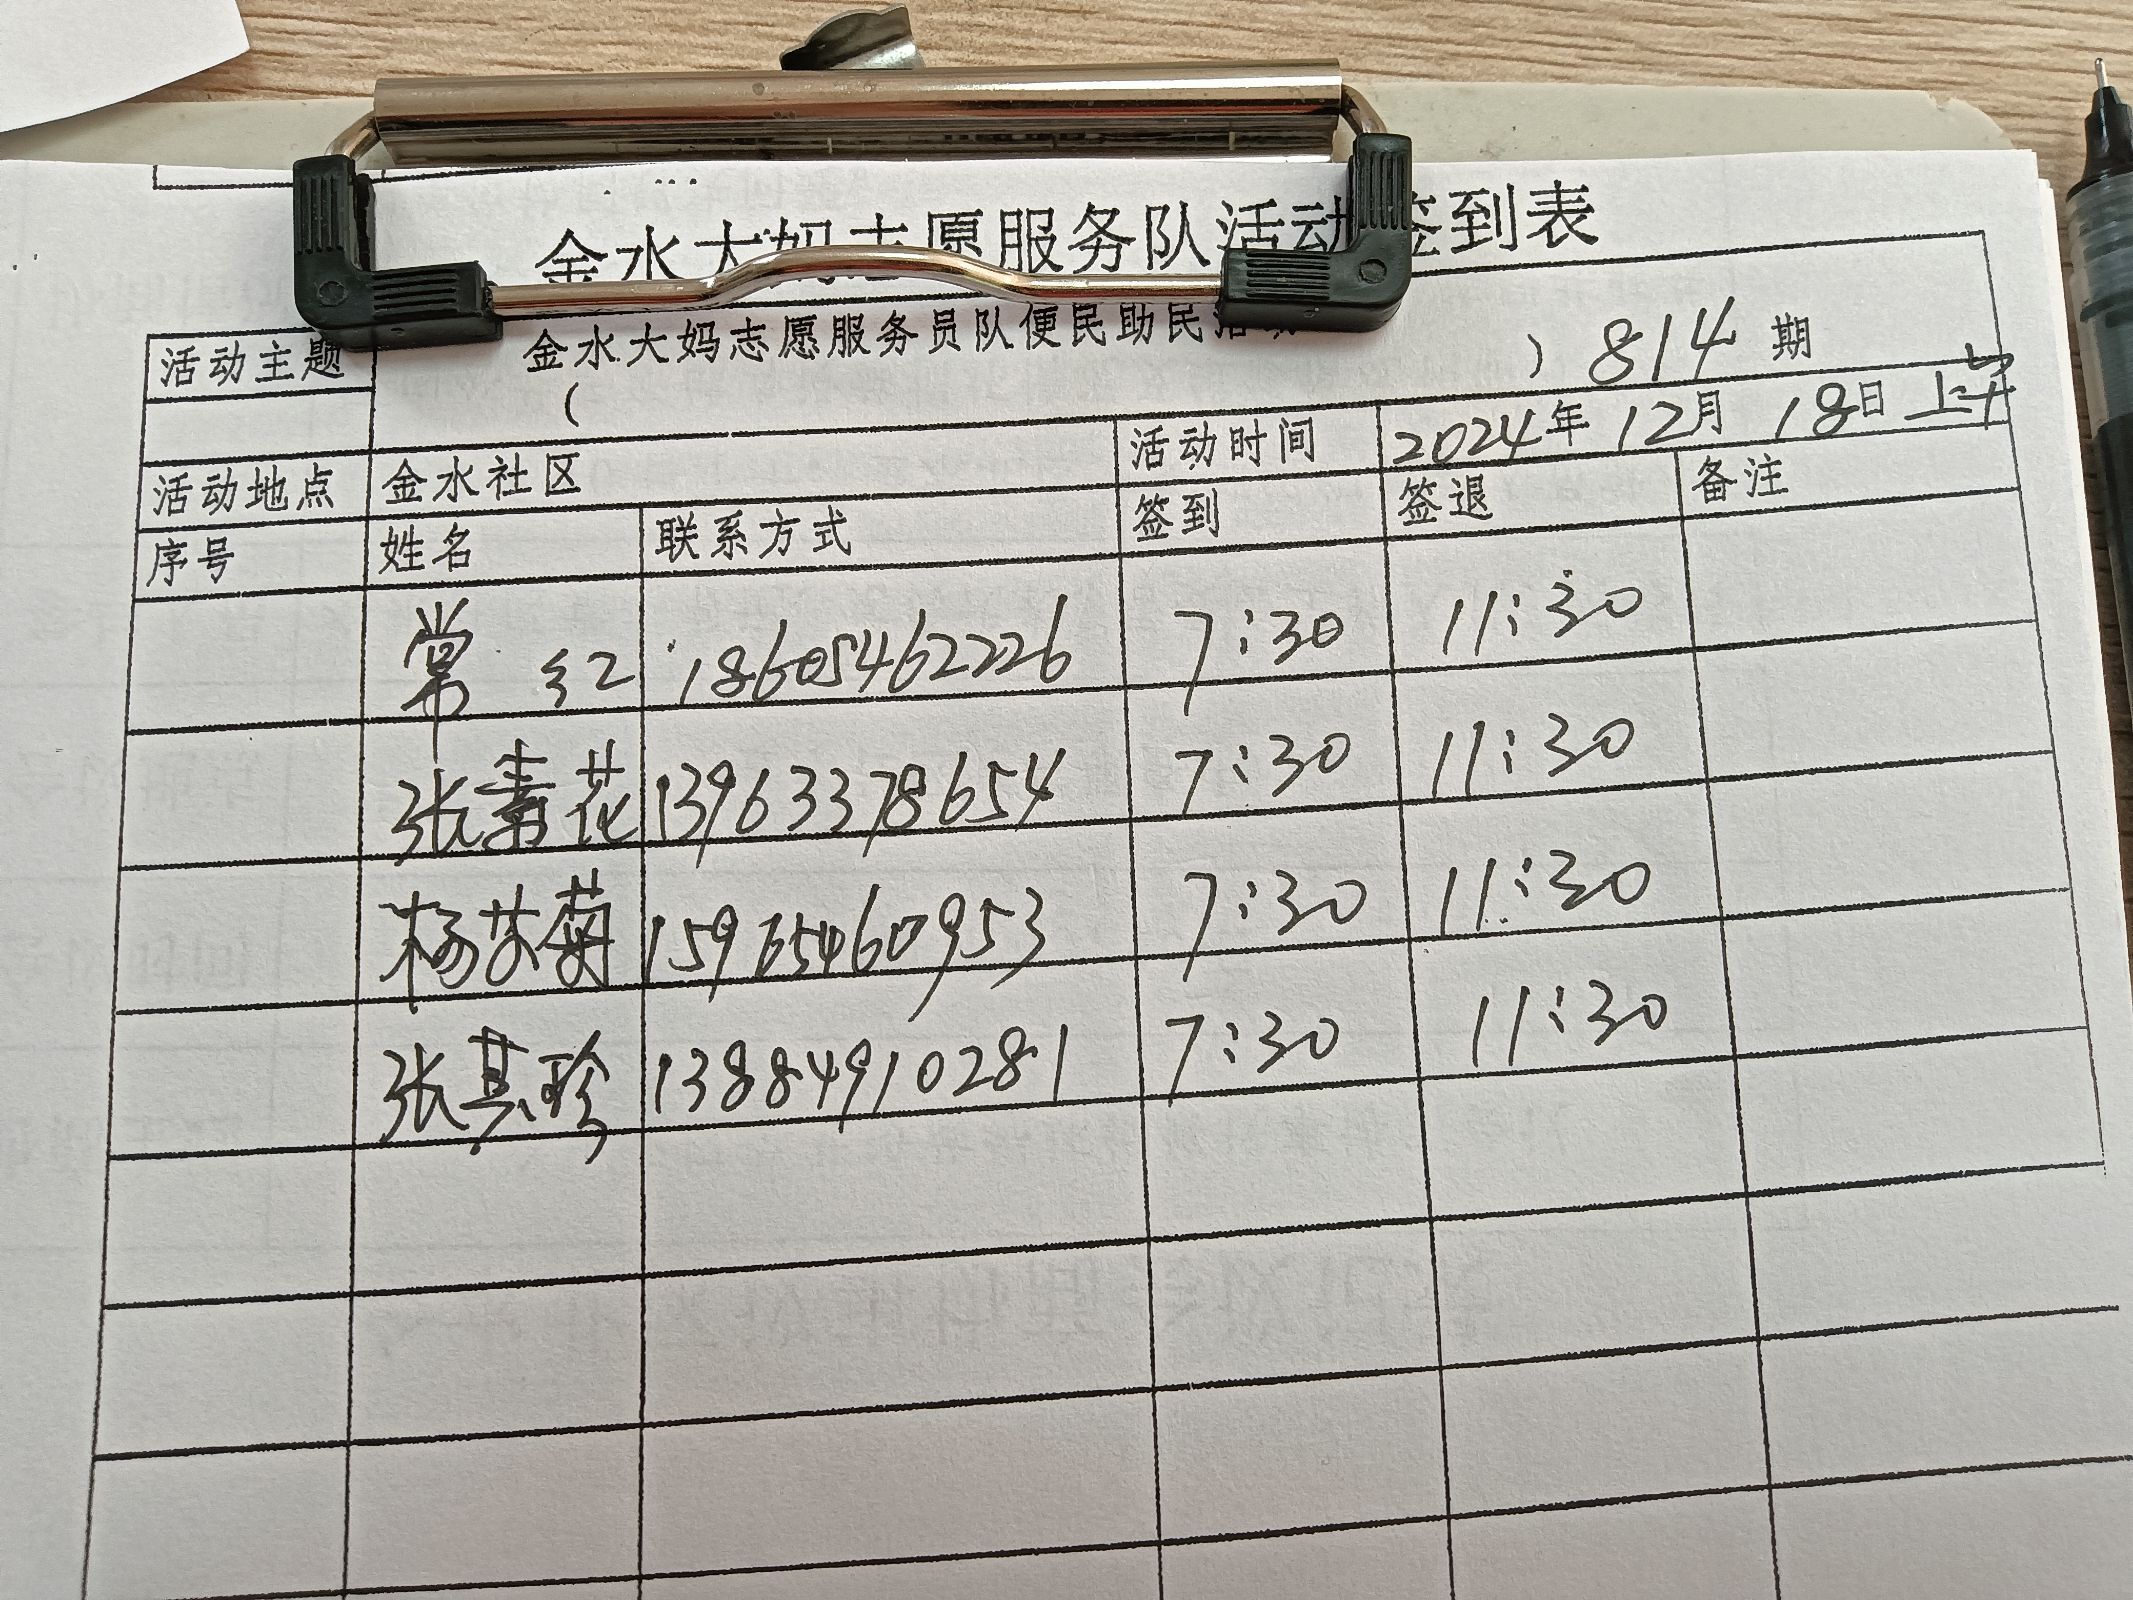 金水大妈志愿服务队活动签到表
活动主题 金水大妈志愿服务员队便民助民活动
( ) 814 期
活动地点 金水社区 活动时间 2024年 12月 18日 上午
序号 姓名 联系方式 签到 签退 备注
常红 18605462226 7:30 11:30
张素花 13963378654 7:30 11:30
杨苏菊 15965460953 7:30 11:30
张其珍 13884910281 7:30 11:30